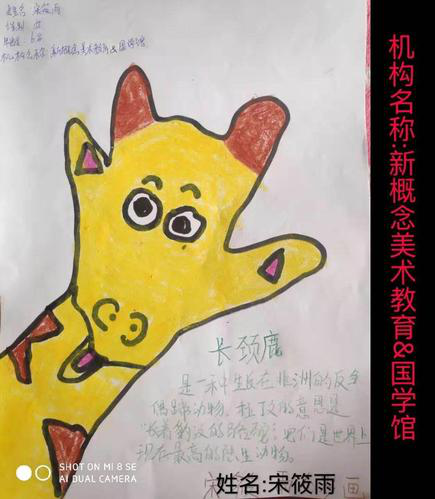 姓名 宋筱雨
性别 女
年龄 6岁
机构名称 新概念美术教育&国学馆
机构名称:新概念美术教育&国学馆
长颈鹿
是一种生长在非洲的反刍
偶蹄动物,拉丁的意思是
"长着豹纹的骆驼",它们是世界上
现存最高的陆生动物。
宋 画
姓名:宋筱雨
SHOT ON MI 8 SE
AI DUAL CAMERA